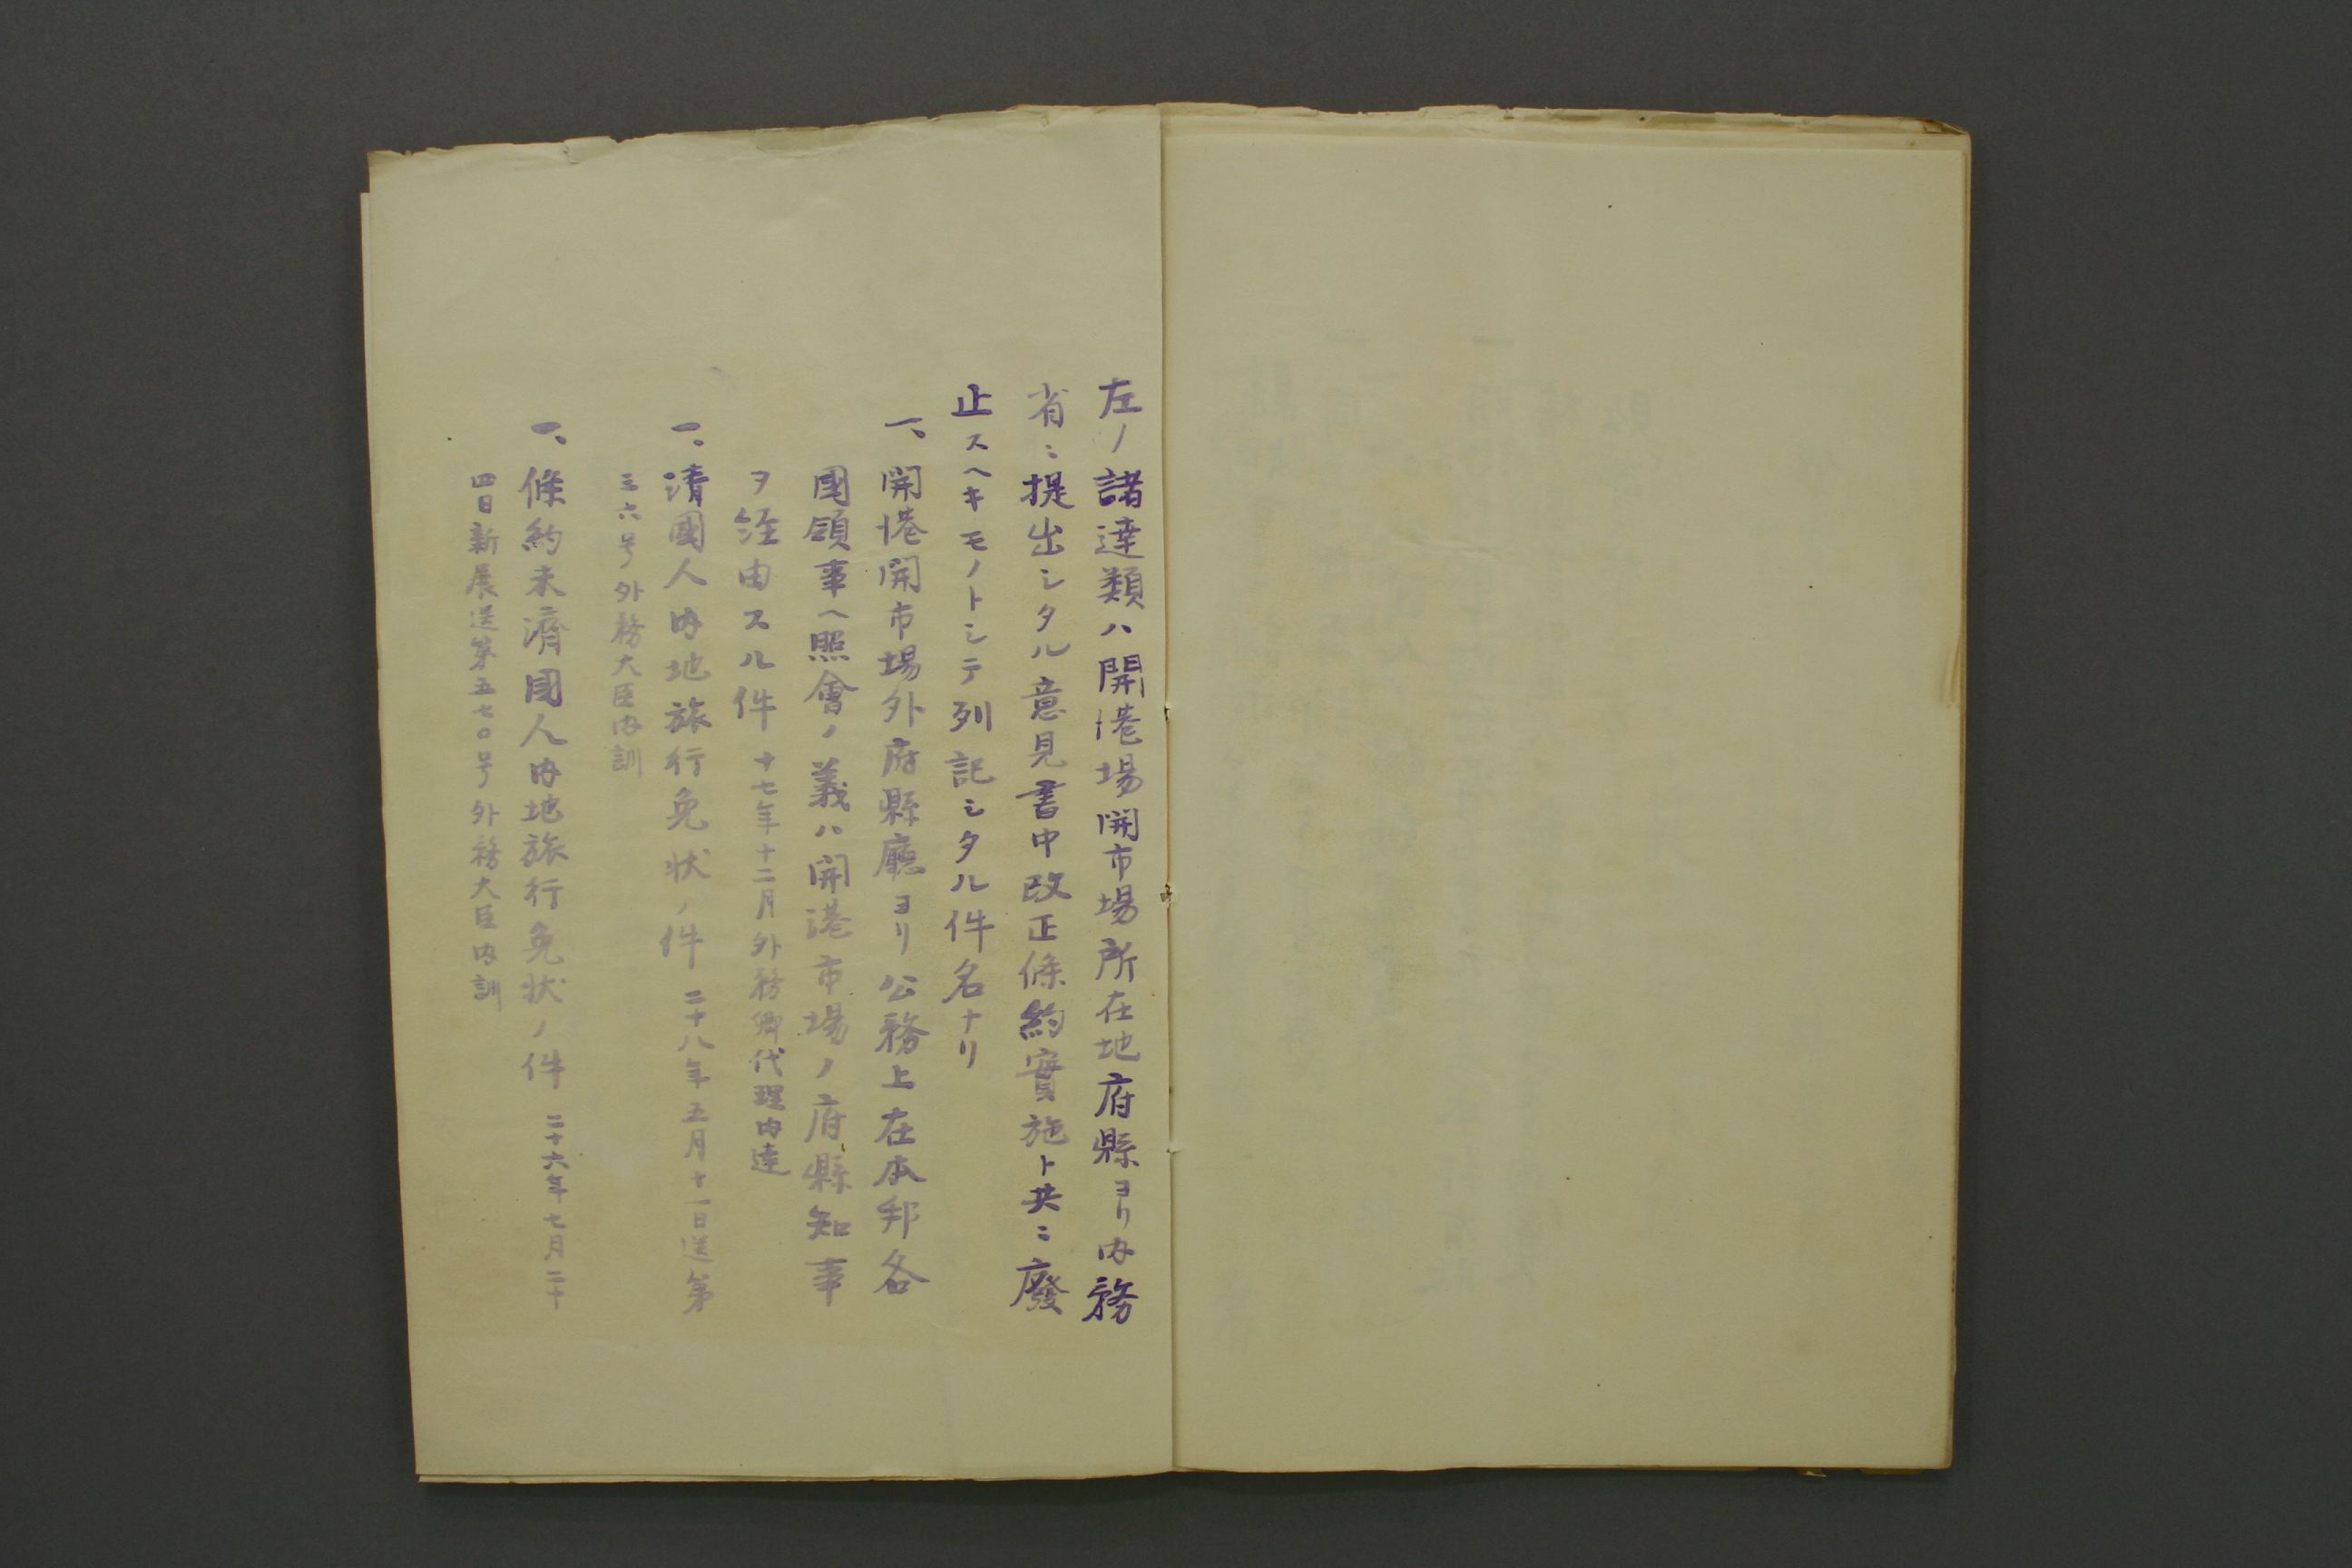 左ノ諸達類ハ開港場開市場所在地府縣ヨリ内務
省ニ提出シタル意見書中改正條約實施ト共ニ廢
止スヘキモノトシテ列記シタル件名ナリ
一、開港開市場外府縣廳ヨリ公務上在本邦各
國領事ヘ照會ノ義ハ開港市場ノ府縣知事
ヲ経由スル件 十七年十二月外務卿代理内達
一、清國人内地旅行免状ノ件 二十八年五月十一日送第
三六号外務大臣内訓
一、條約未濟國人内地旅行免状ノ件 二十六年七月二十
四日新展送第五七〇号外務大臣内訓